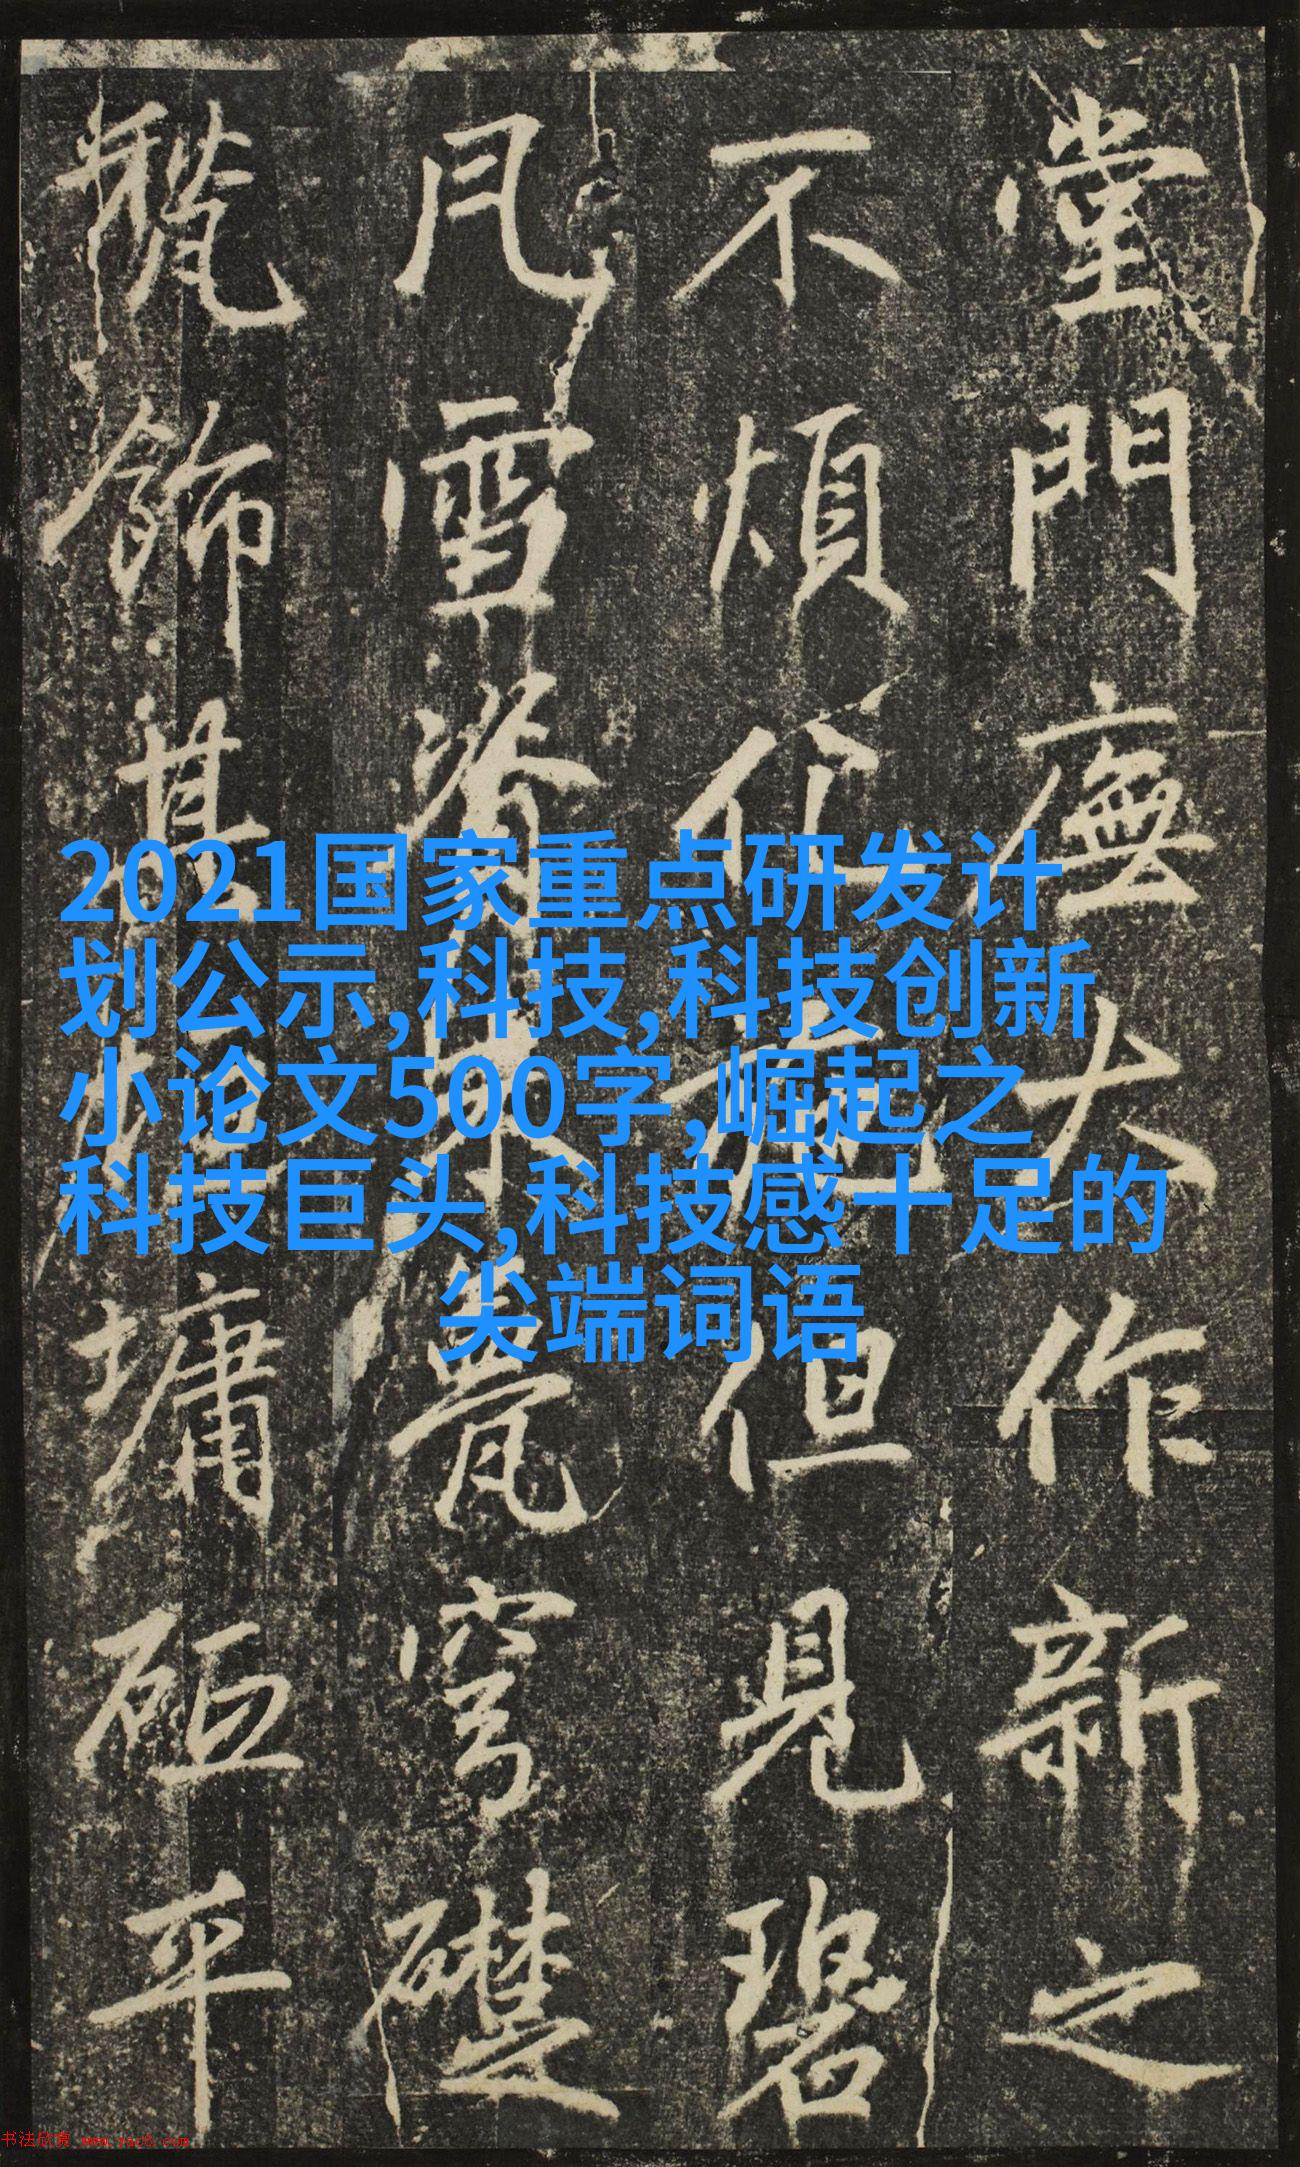 堂門廡大作新之
不煩化施但見碧
瓦雪脊朱甍穹礎
甃飾基墉砥平
2021国家重点研发计
划公示,科技,科技创新
小论文500字,崛起之
科技巨头,科技感十足的
尖端词语
书法欣赏 www.yac8.com